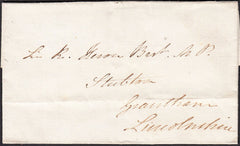 Sir R. Heron Bart. M.P.
Stubton
Grantham
Lincolnshire